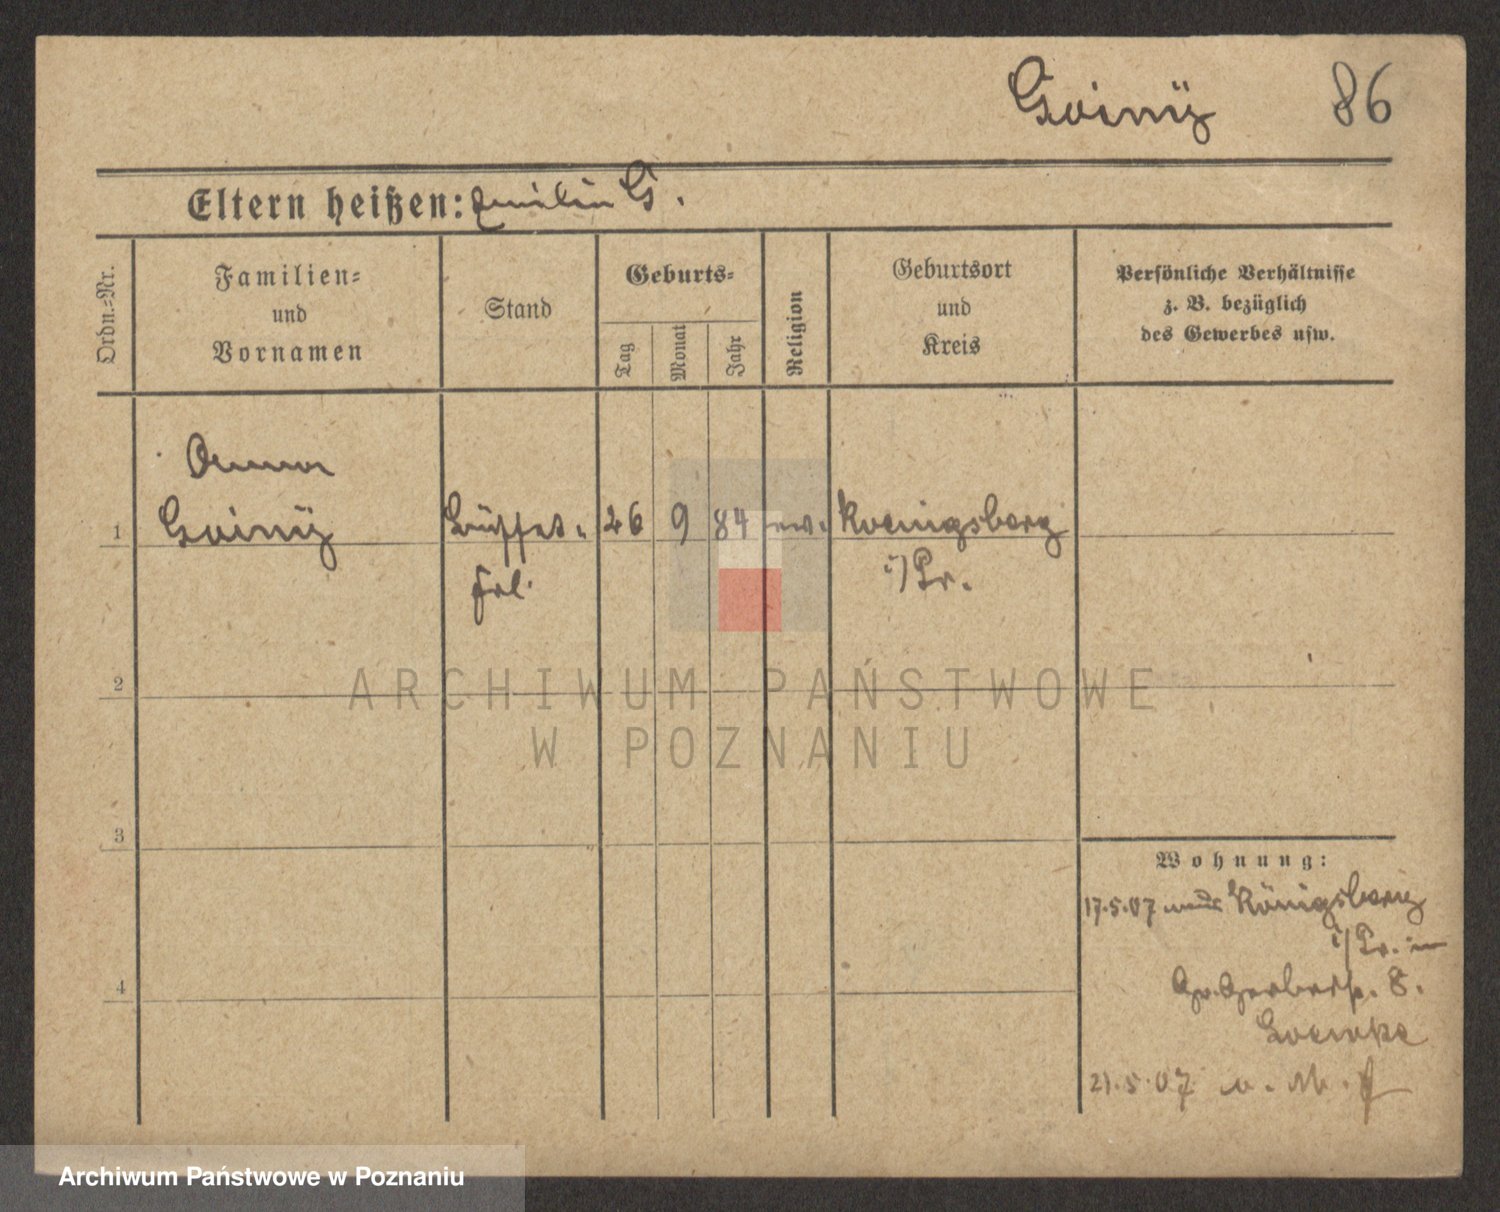 86
Eltern heißen: G.
Ordn.-Nr.
Familien-
und
Vornamen
Stand
Geburts-
Tag
Monat
Jahr
Religion
Geburtsort
und
Kreis
Persönliche Verhältnisse
z. B. bezüglich
des Gewerbes usw.
Anna
1 Büffet- 26 9 84 ev. Koenigsberg
Frl. i/Pr.
2
3
4
Wohnung:
17.5.07 Königsberg
i/Pr. in
Gr. Gerberstr. 8.
21.5.07 v. M.
ARCHIWUM PAŃSTWOWE
W POZNANIU
Archiwum Państwowe w Poznaniu